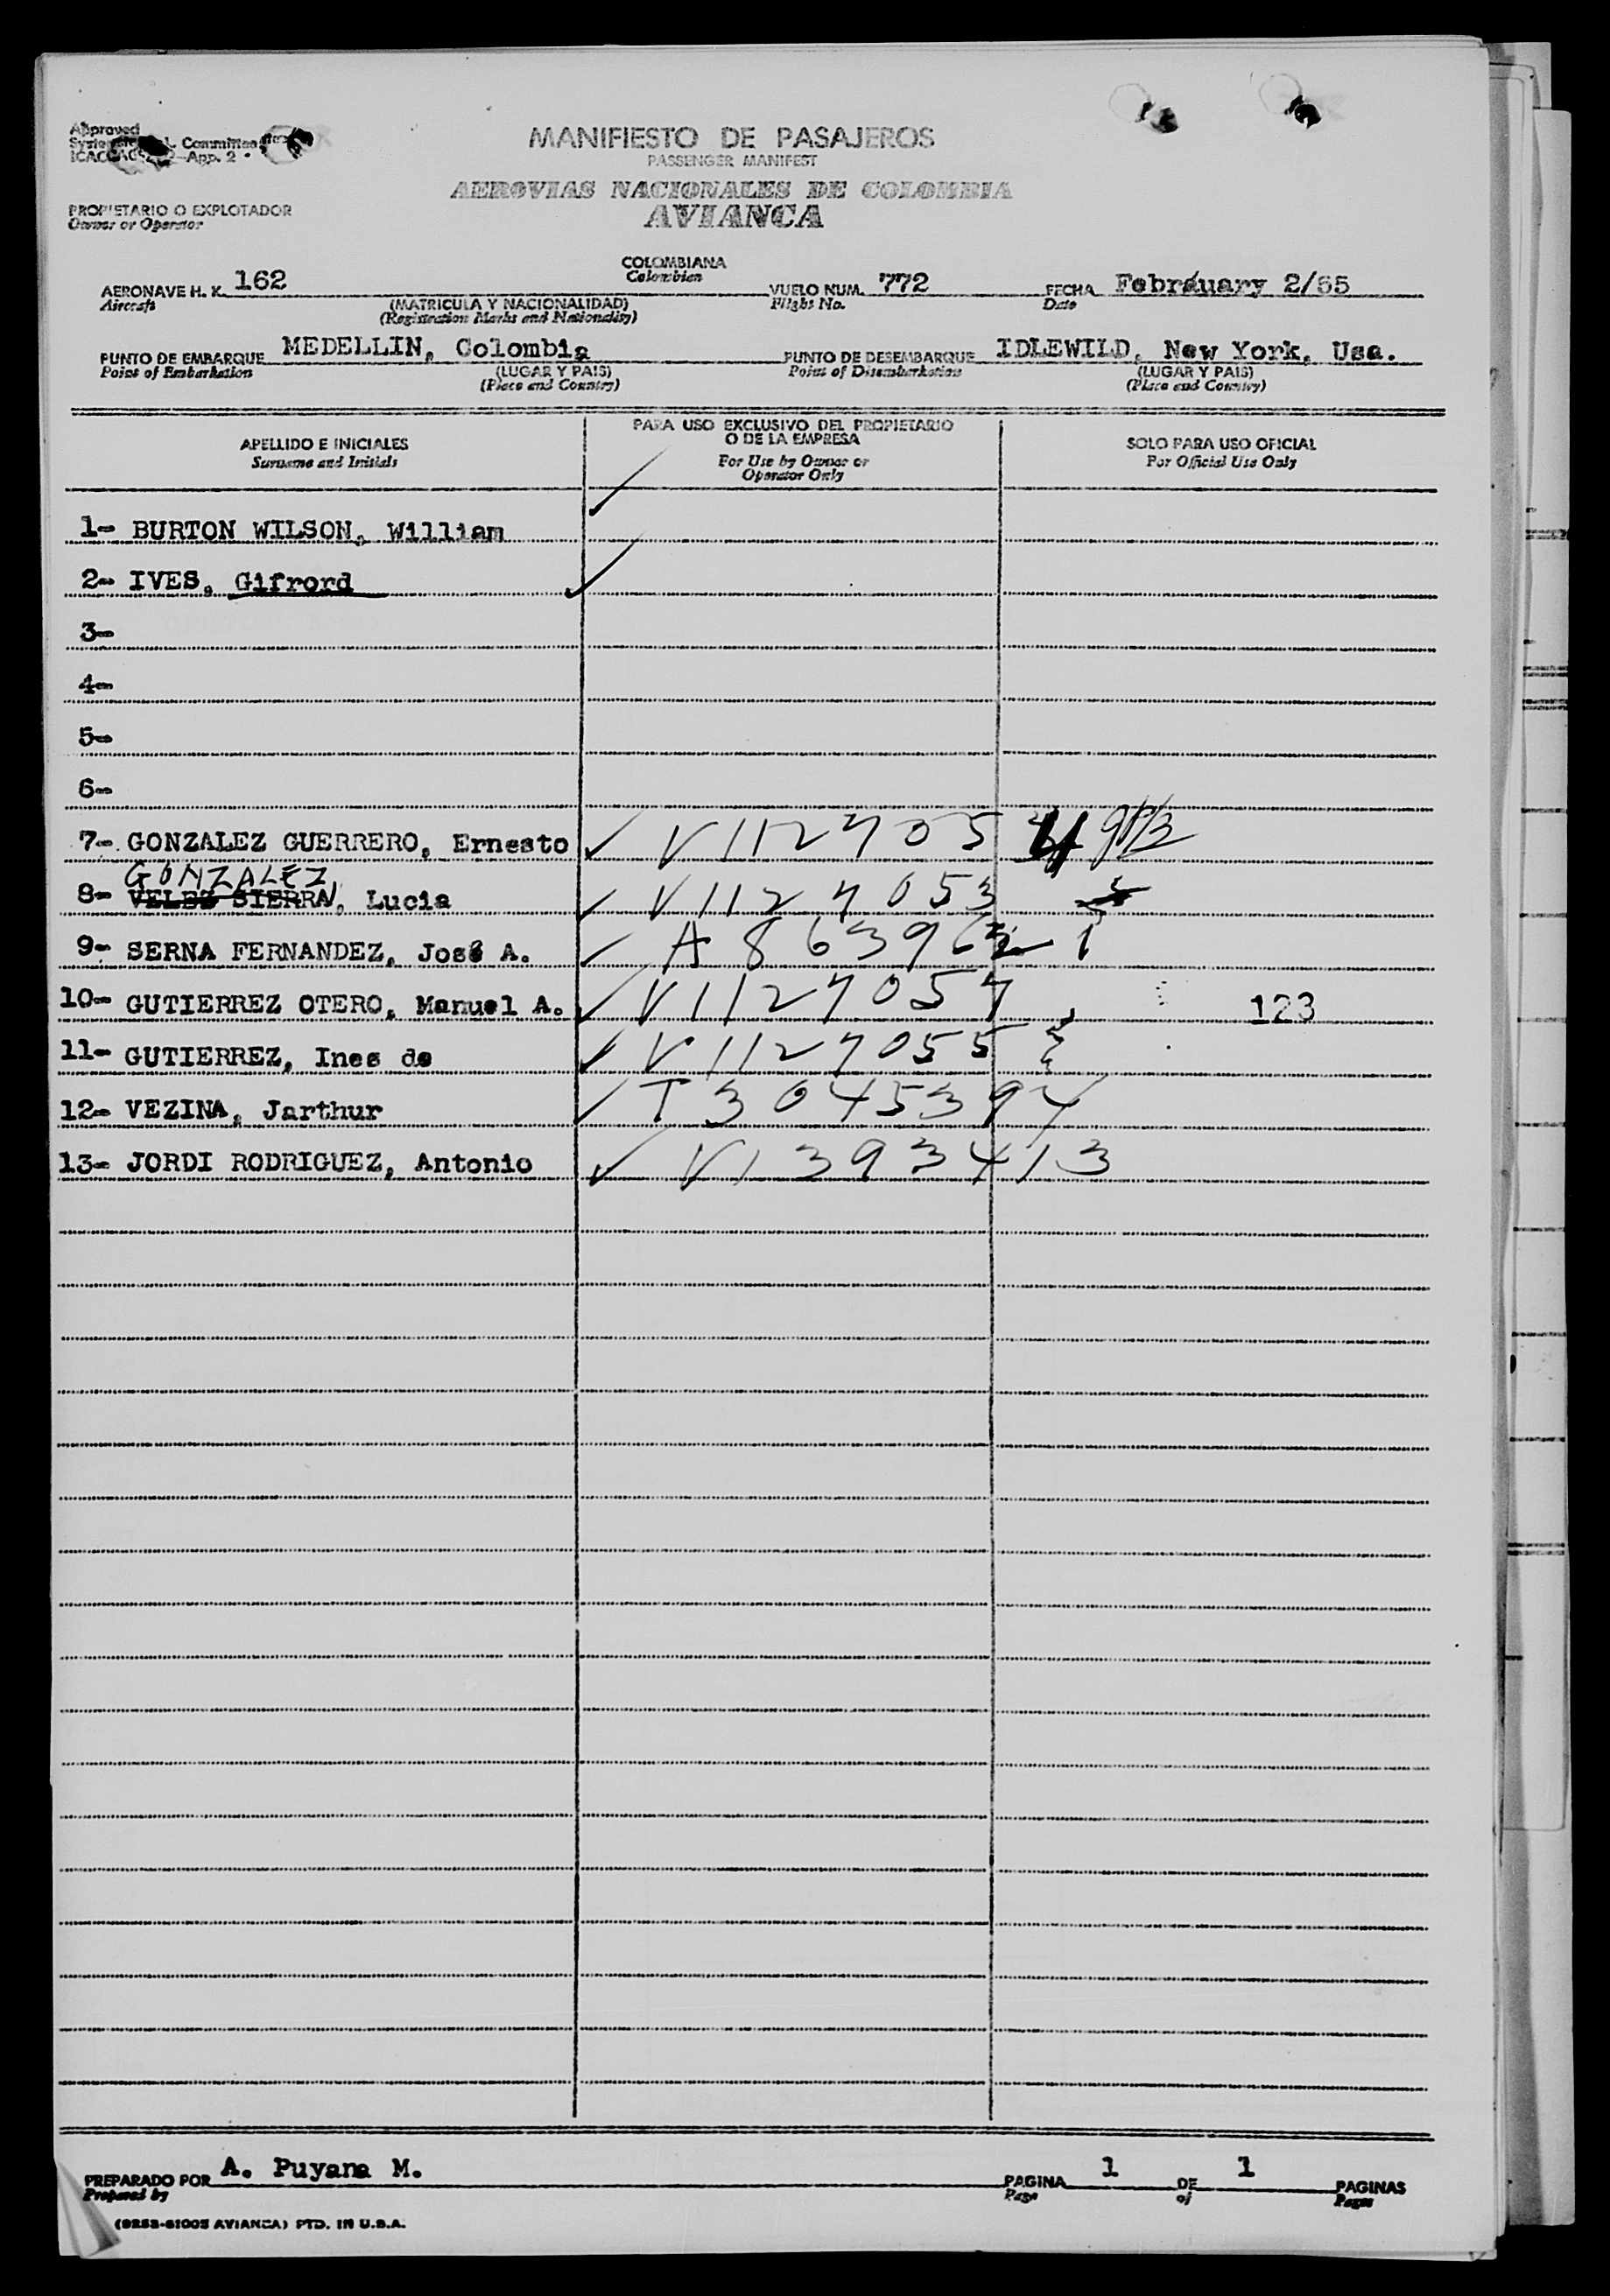 Approved
Committee
App. 2
MANIFIESTO DE PASAJEROS
PASSENGER MANIFEST
AEROVIAS NACIONALES DE COLOMBIA
AVIANCA
PROPIETARIO O EXPLOTADOR
Owner or Operator
AERONAVE H. K. 162 COLOMBIANA VUELO NUM. 772 FECHA Februuary 2/65
Aircraft Colombian Flight No. Date
(MATRICULA Y NACIONALIDAD)
(Registration Marks and Nationality)
PUNTO DE EMBARQUE MEDELLIN, Colombia PUNTO DE DESEMBARQUE IDLEWILD, New York, Usa.
Point of Embarkation (LUGAR Y PAIS) Point of Disembarkation (LUGAR Y PAIS)
(Place and Country) (Place and Country)
APELLIDO E INICIALES PARA USO EXCLUSIVO DEL PROPIETARIO O DE LA EMPRESA SOLO PARA USO OFICIAL
Surname and Initials For Use by Owner or Operator Only For Official Use Only
1- BURTON WILSON, William
2- IVES, Gifrord
3-
4-
5-
6-
7- GONZALEZ GUERRERO, Ernesto V1127054
GONZALEZ
8- VELEZ SIERRA, Lucia V1127053
9- SERNA FERNANDEZ, José A. A 8639632
10- GUTIERREZ OTERO, Manuel A. V1127057 123
11- GUTIERREZ, Ines de V1127055
12- VEZINA, Jarthur T3045394
13- JORDI RODRIGUEZ, Antonio V1393413
PREPARADO POR A. Puyana M. PAGINA 1 DE 1 PAGINAS
Prepared by Page of Pages
(9253-61005 AVIANCA) PTD. IN U.S.A.